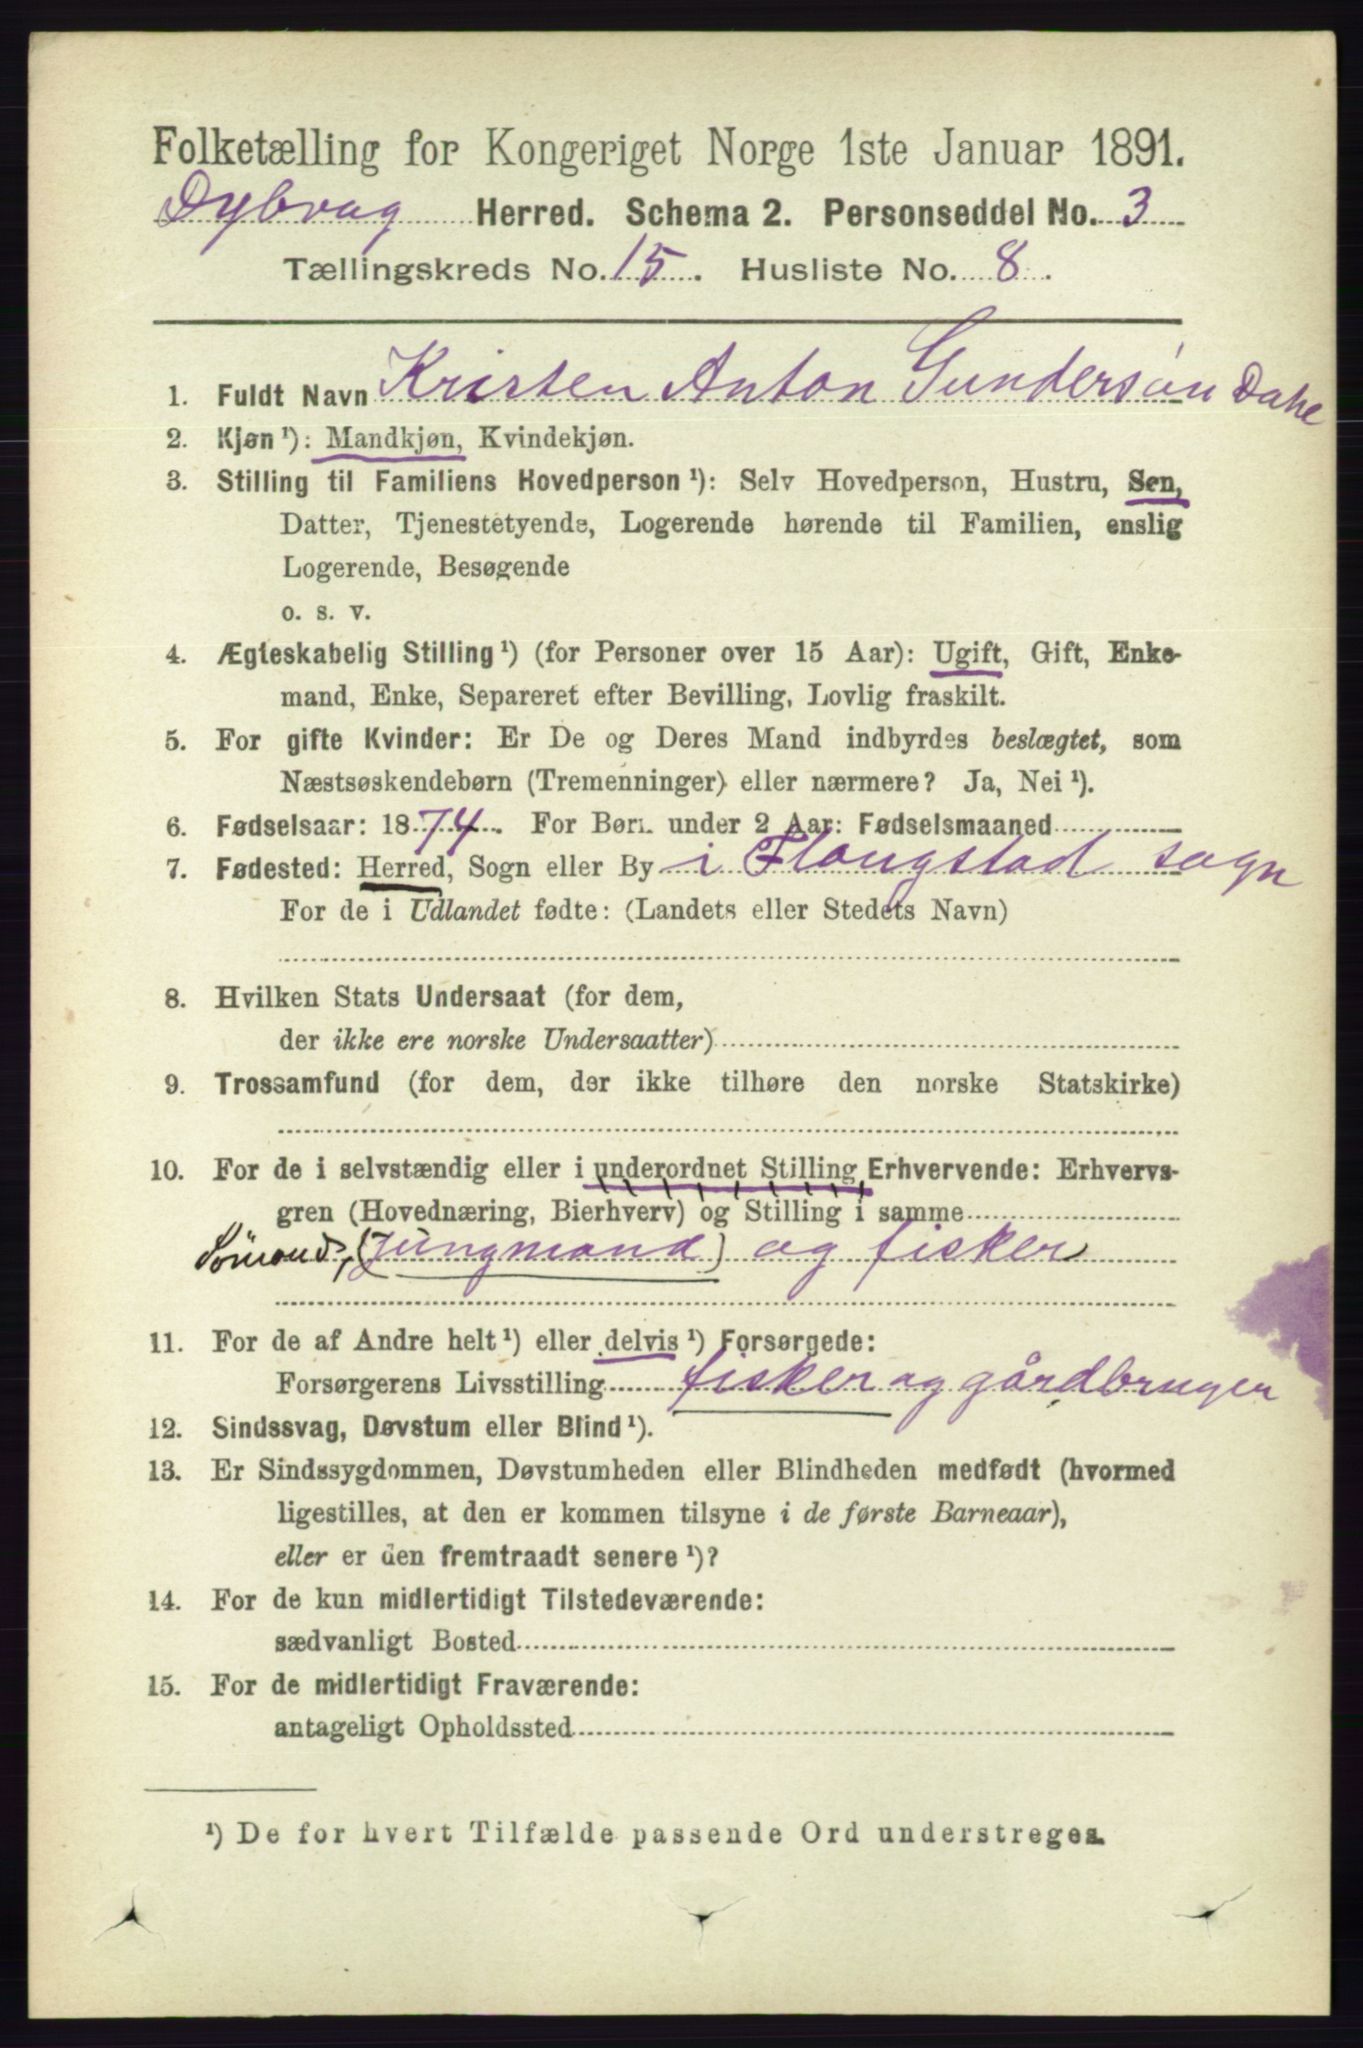 Folketælling for Kongeriget Norge 1ste Januar 1891.
Dybvag Herred. Schema 2. Personseddel No. 3
Tællingskreds No. 15. Husliste No. 8.
1. Fuldt Navn Kristen Anton Gundersøn Dahl
2. Kjøn ¹): Mandkjøn, Kvindekjøn.
3. Stilling til Familiens Hovedperson ¹): Selv Hovedperson, Hustru, Søn,
Datter, Tjenestetyende, Logerende hørende til Familien, enslig
Logerende, Besøgende
o. s. v.
4. Ægteskabelig Stilling ¹) (for Personer over 15 Aar): Ugift, Gift, Enke-
mand, Enke, Separeret efter Bevilling, Lovlig fraskilt.
5. For gifte Kvinder: Er De og Deres Mand indbyrdes beslægtet, som
Næstsøskendebørn (Tremenninger) eller nærmere? Ja, Nei ¹).
6. Fødselsaar: 1874. For Børn under 2 Aar: Fødselsmaaned
7. Fødested: Herred, Sogn eller By i Flougstad sogn
For de i Udlandet fødte: (Landets eller Stedets Navn)
8. Hvilken Stats Undersaat (for dem,
der ikke ere norske Undersaatter)
9. Trossamfund (for dem, der ikke tilhøre den norske Statskirke)
10. For de i selvstændig eller i underordnet Stilling Erhvervende: Erhvervs-
gren (Hovednæring, Bierhverv) og Stilling i samme
Sömand, (Jungmand) og fisker
11. For de af Andre helt ¹) eller delvis ¹) Forsørgede:
Forsørgerens Livsstilling fisker og gårdbruger
12. Sindssvag, Døvstum eller Blind ¹).
13. Er Sindssygdommen, Døvstumheden eller Blindheden medfødt (hvormed
ligestilles, at den er kommen tilsyne i de første Barneaar),
eller er den fremtraadt senere ¹)?
14. For de kun midlertidigt Tilstedeværende:
sædvanligt Bosted
15. For de midlertidigt Fraværende:
antageligt Opholdssted
¹) De for hvert Tilfælde passende Ord understreges.